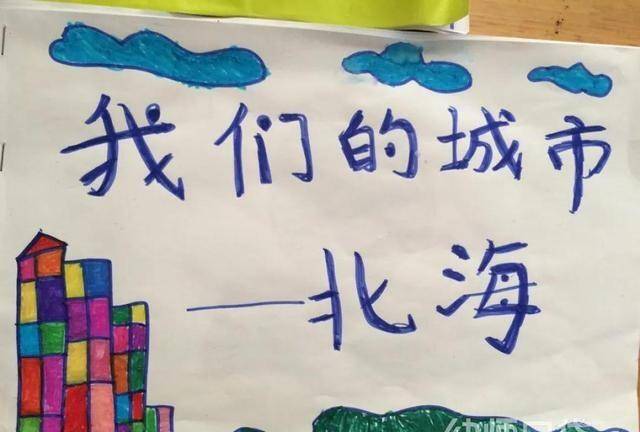 我们的城市
—北海